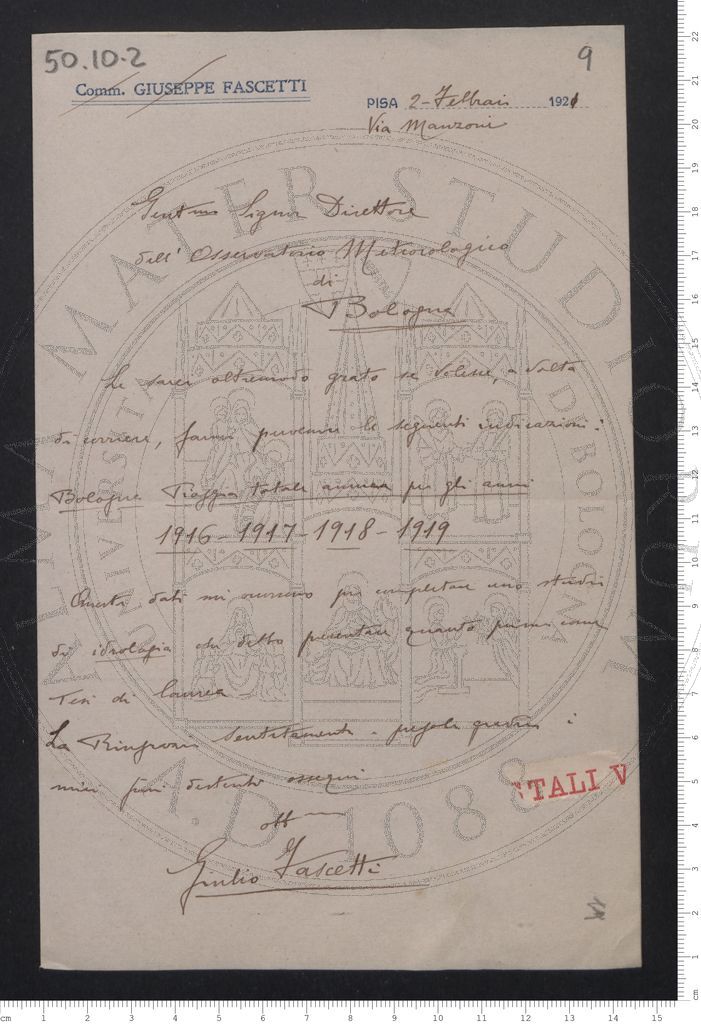 50.10.2
9
Comm. GIUSEPPE FASCETTI
PISA 2 - Febbraio 1921
Via Manzoni
Gentmo Signor Direttore
dell' Osservatorio Meteorologico
di
Bologna
Le sarei oltremodo grato se volesse, a volta
di corriere, farmi pervenire le seguenti indicazioni:
Bologna Pioggia totale annua per gli anni
1916 - 1917 - 1918 - 1919
Questi dati mi occorrono per completare uno studio
di idrologia che debbo presentare quanto prima come
Tesi di laurea
La Ringrazio sentitamente e pregola gradire i
miei più distinti ossequi
Giulio Fascetti
TALI V
ALMA MATER STUDIORUM
UNIVERSITÀ DI BOLOGNA
A.D. 1088